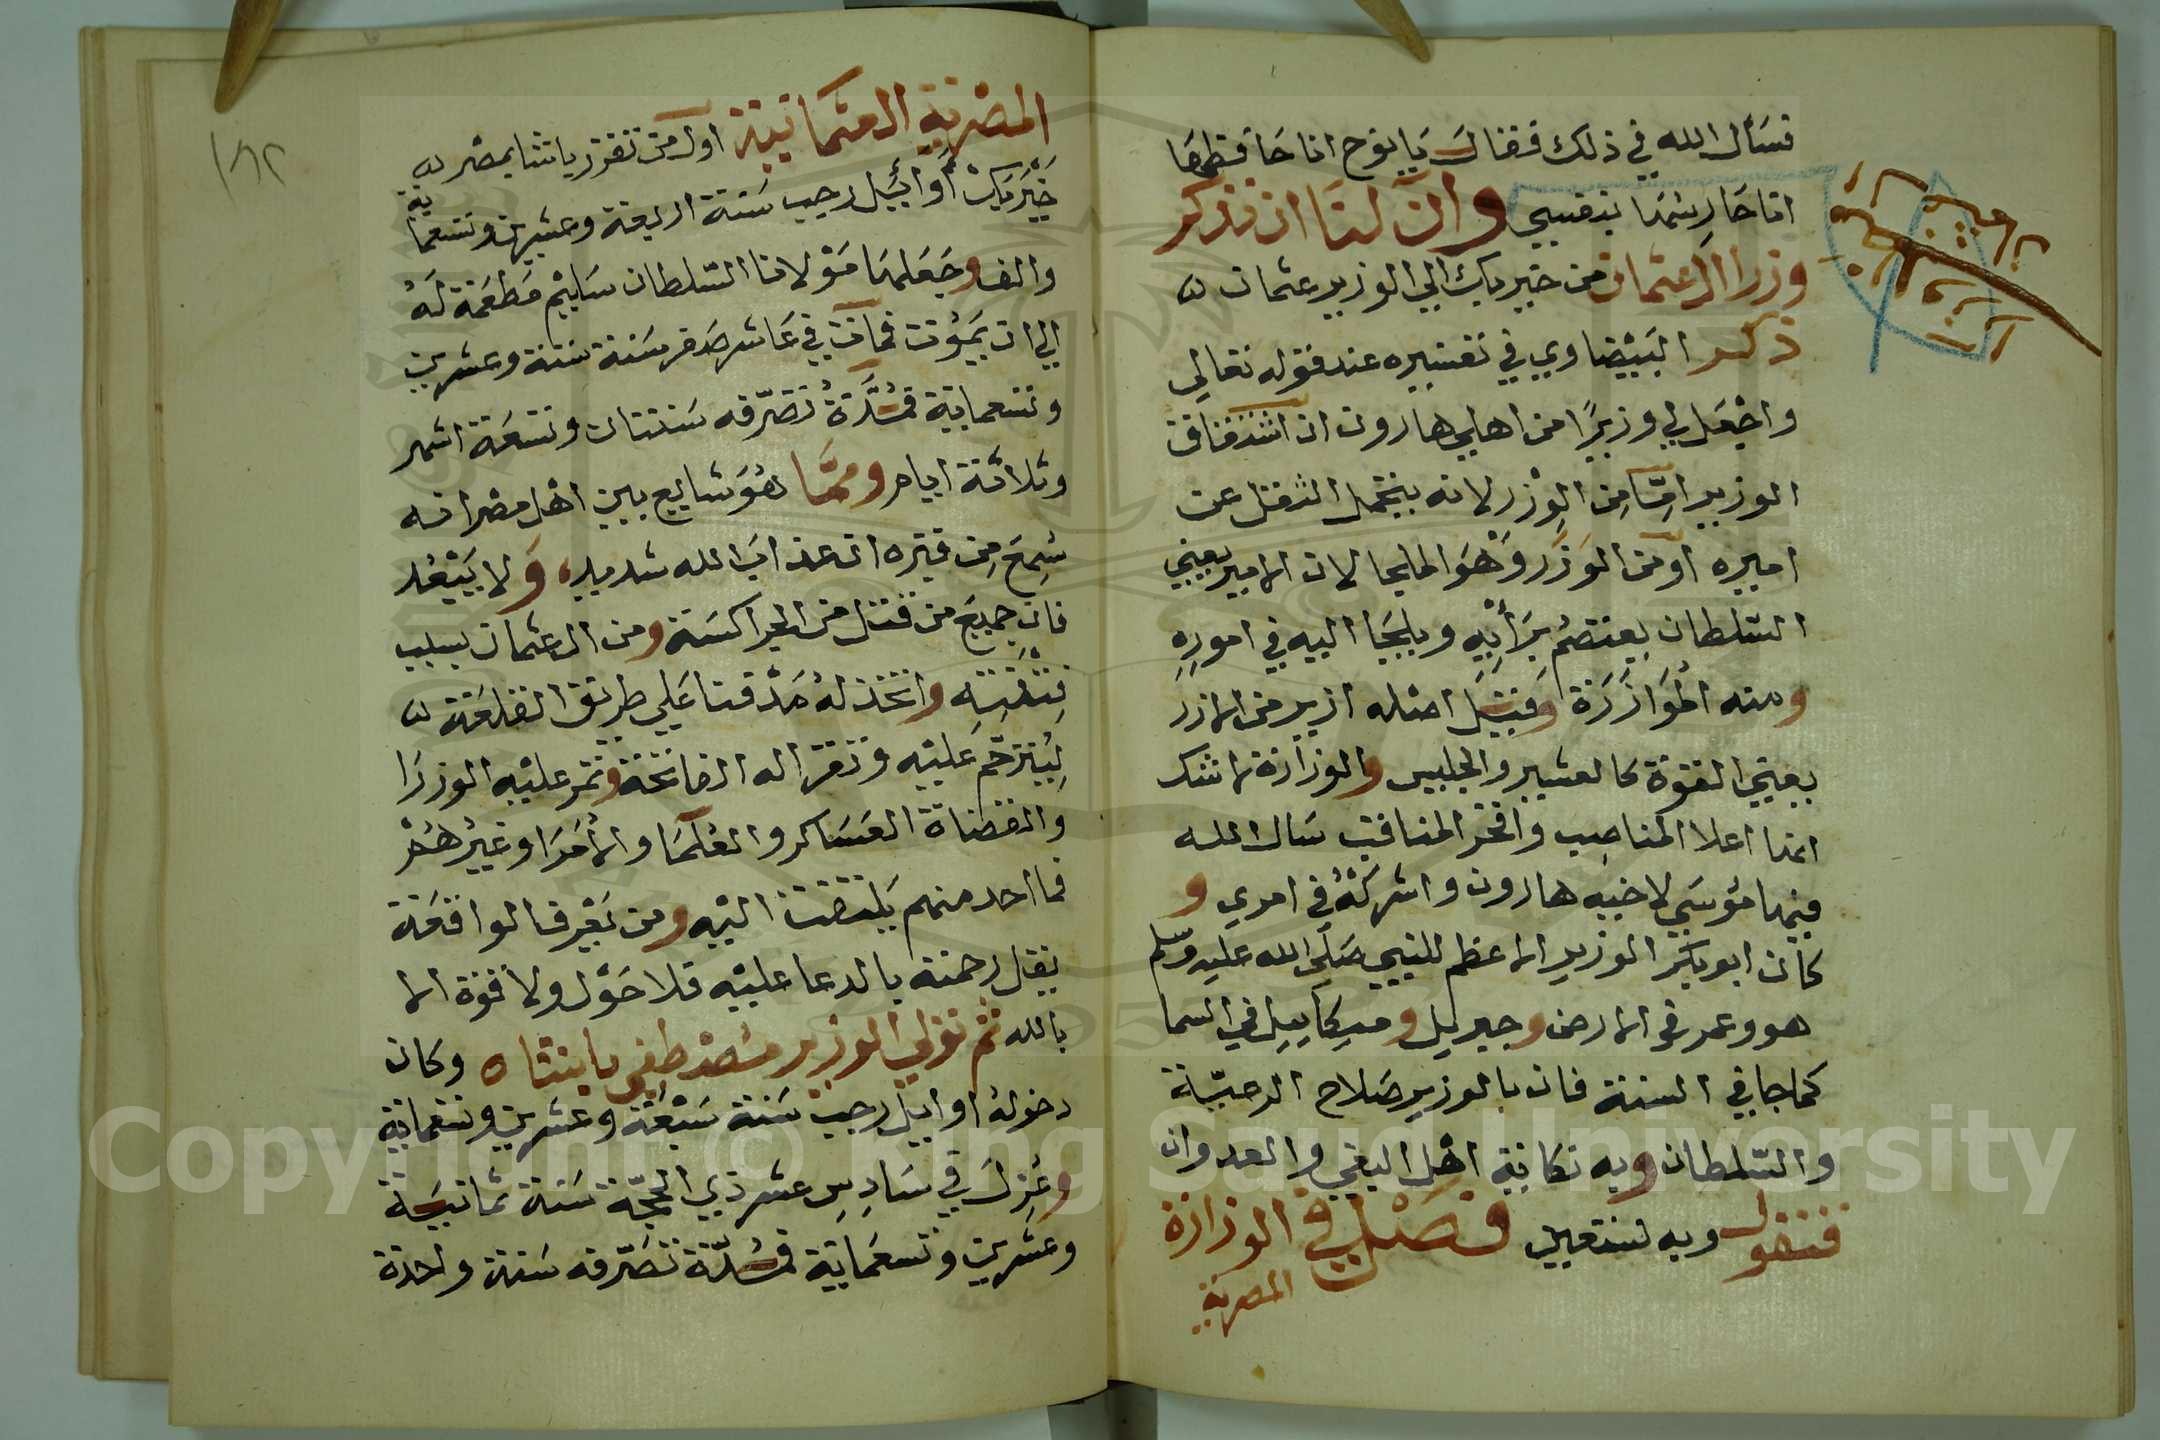 فسأل الله في ذلك فقال يا نوح انا حافظها
انا حارسها بنفسي وان لنا ان نذكر
وزرا آل عثمان من خير بك الي الوزير عثمان
ذكر البيضاوي في تفسيره عند قوله تعالي
واجعل لي وزيرا من اهلي هارون ان اشتقاق
الوزير امّا من الوزر لانه يتحمل الثقل عن
اميره او من الوزر وهو الملجا لان الامير يعني
السلطان يعتصم برأيه ويلجا اليه في اموره
ومنه الموازرة وقيل اصله ازير من الازر
بمعني القوة كالعشير والجليس والوزارة لا شك
انها اعلا المناصب وافخر المناقب سال الله
فيها موسي لاخيه هارون واشركه في امري و
كان ابو بكر الوزير الاعظم للنبي صلي الله عليه وسلم
هو وعمر في الارض وجبريل وميكاييل في السما
كما جا في السنة فان بالوزير صلاح الرعيّة
والسلطان وبه نكاية اهل البغي والعدوان
فنقول وبه نستعين فصل في الوزارة
المصرية
١٨٢
المصرية العثمانية اول من تقرر باشا بمصر
خير بك أوائيل رجب سنة اربعة وعشرين وتسعماية
والف وجعلها مولانا السلطان سليم مطعمة له
الي ان يموت فمات في عاشر صفر سنة ستة وعشرين
وتسعماية فمُدّة تصرّفه سنتان وتسعة اشهر
وثلاثة ايام وممّا هو شايع بين اهل مصر انه
سُمِع من قبره ان عذاب الله شديد ولا يبعُد
فان جميع من قتل من الجراكسة ومن ال عثمان بسبب
فتنته واتخذ له مدفنا علي طريق القلعة
ليُترحّم عليه وتقرا له الفاتحة وتمر عليه الوزرا
والقضاة العساكر والعلما والأمرا وغيرُهُم
فما احد منهم يلتفت اليه ومن يعرف الواقعة
يقل رحمته بالدعا عليه فلا حول ولا قوة الا
بالله ثم تولي الوزير مصطفي باشا وكان
دخوله اواييل رجب سنة سبعة وعشرين وتسعماية
وعُزل في سادس عشر ذي الحجّة سنة ثمانية
وعشرين وتسعماية فمُدّة تصرّفه سنة واحدة
Copyright © King Saud University